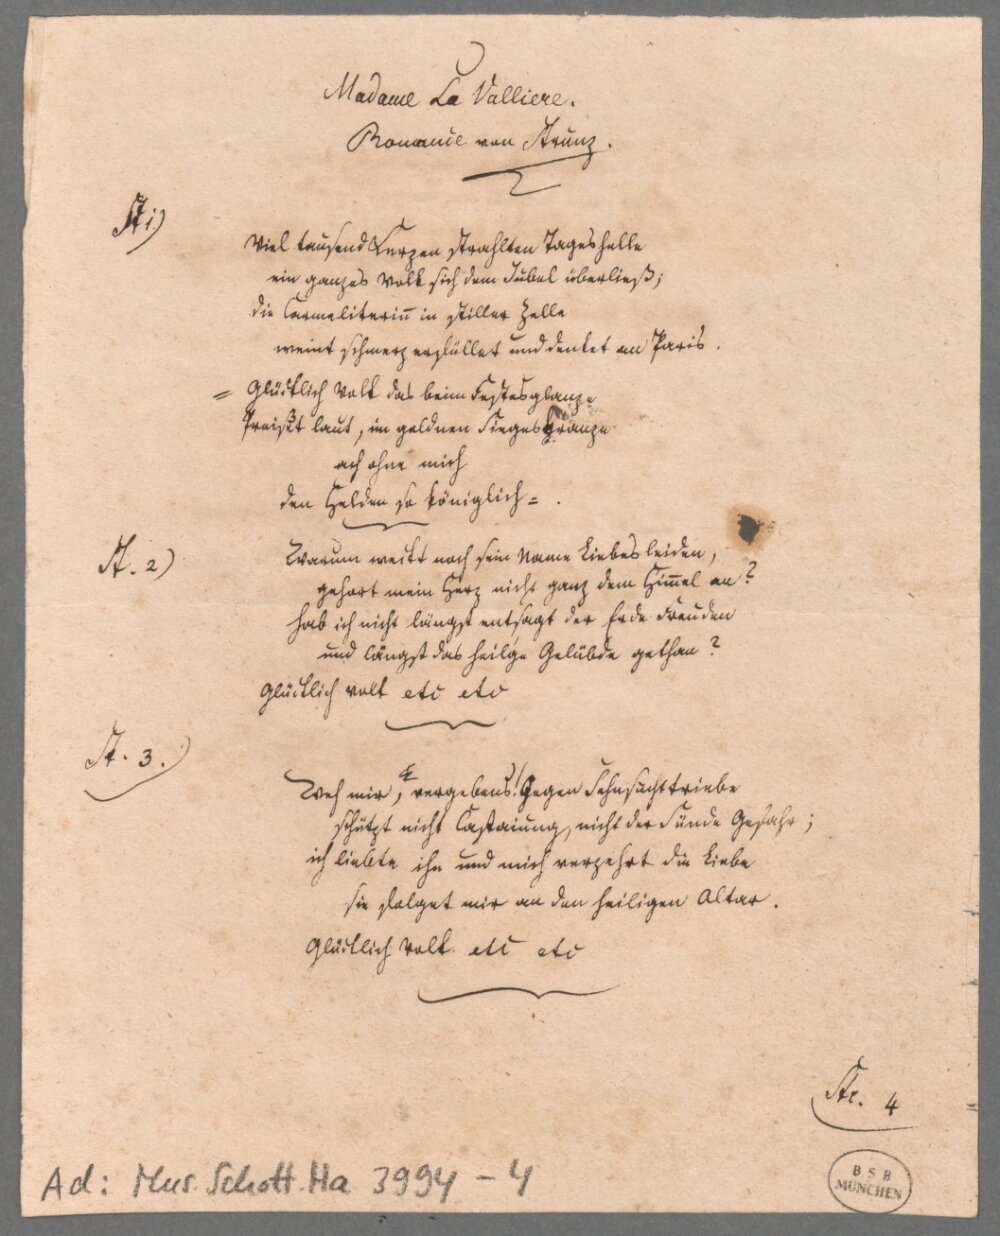 Madame La Valliere.
Romanie von Strunz.
St 1)
Viel tausend Kerzen strahlten Tageshelle
ein ganzes Volk sich dem Jubel überließ;
die Carmeliterin̄ in stiller Zelle
weint schmerzerfüllet und denket an Paris.
= Glücklich Volk das beim Festesglanze
Preist laut, im goldnen Siegeskranze
ach ohne mich
den Helden so königlich = .
St. 2)
Warum weckt noch sein Name Liebesleiden,
gehört mein Herz nicht ganz dem Him̄el an?
hab ich nicht längst entsagt der Erde Freuden
und längst das heilge Gelübde gethan?
Glücklich Volk etc etc
St. 3.)
Weh mir, vergebens! Gegen Sehnsuchttriebe
schützt nicht Casteiung, nicht der Sünde Gefahr;
ich liebte ihn und mich verzehrt die Liebe
sie folget mir an den heiligen Altar.
Glücklich Volk etc etc
Str. 4
Ad: Mus. Schott. Ha 3994-4
BSB
MÜNCHEN